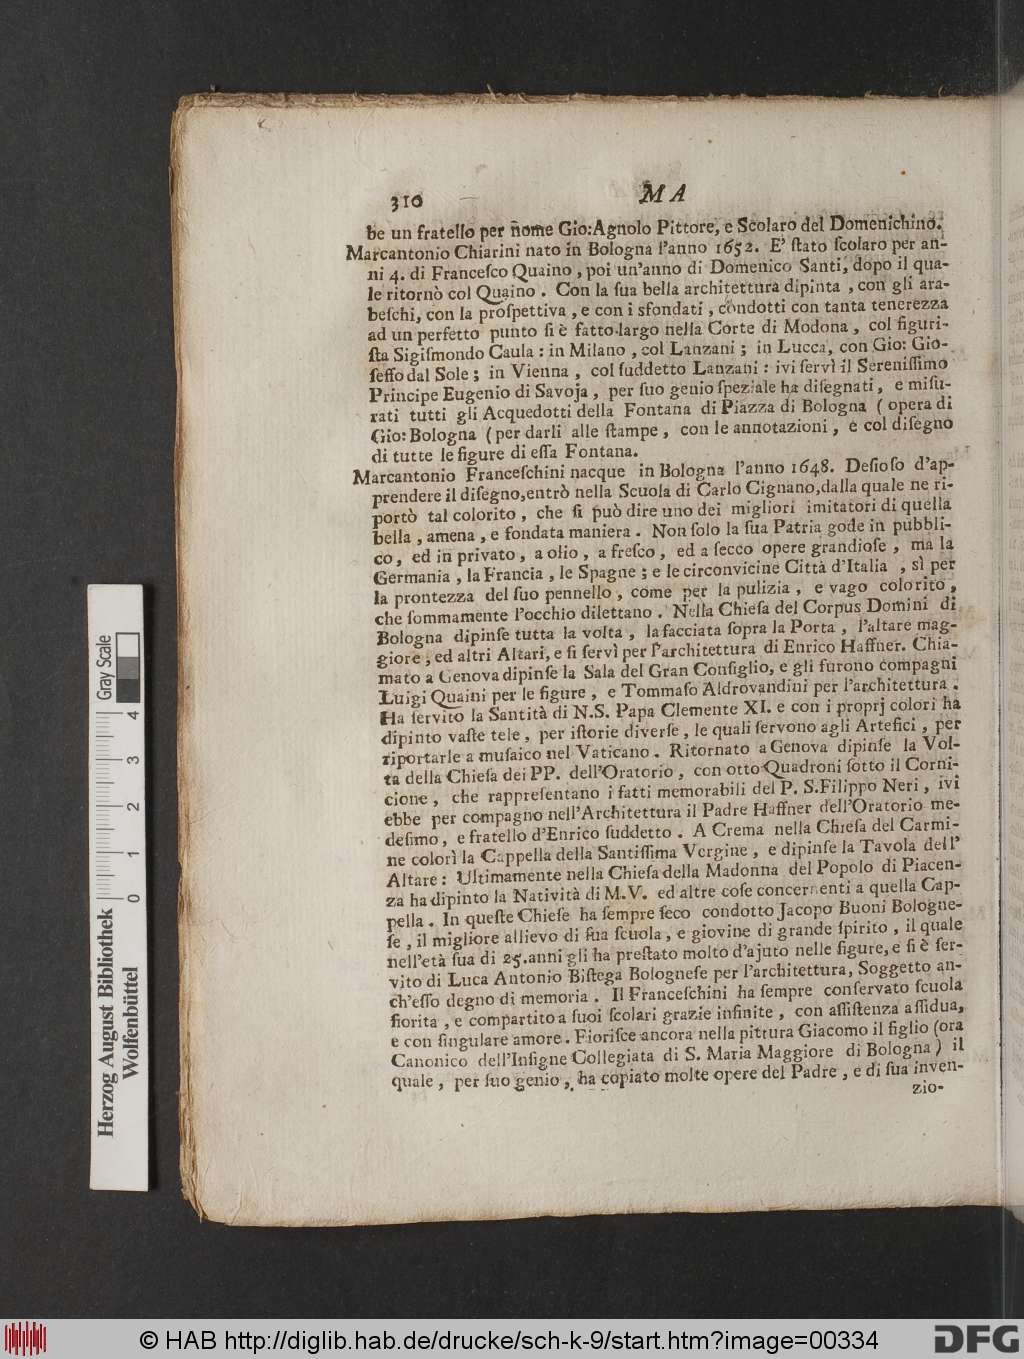 310
MA
be un fratello per nome Gio:Agnolo Pittore, e Scolaro del Domenichino.
Marcantonio Chiarini nato in Bologna l'anno 1652. E' ſtato ſcolaro per an-
ni 4. di Franceſco Quaino , poi un'anno di Domenico Santi, dopo il qua-
le ritornò col Quaino . Con la ſua bella architettura dipinta , con gli ara-
beſchi, con la proſpettiva , e con i sfondati , condotti con tanta tenerezza
ad un perfetto punto ſi è fatto largo nella Corte di Modona , col figuri-
ſta Sigiſmondo Caula : in Milano , col Lanzani ; in Lucca, con Gio: Gio-
ſeffo dal Sole ; in Vienna , col ſuddetto Lanzani : ivi ſervì il Sereniſſimo
Principe Eugenio di Savoja , per ſuo genio ſpeziale ha diſegnati , e miſu-
rati tutti gli Acquedotti della Fontana di Piazza di Bologna ( opera di
Gio: Bologna ( per darli alle ſtampe , con le annotazioni , e col diſegno
di tutte le figure di eſſa Fontana.
Marcantonio Franceſchini nacque in Bologna l'anno 1648. Deſioſo d'ap-
prendere il diſegno,entrò nella Scuola di Carlo Cignano,dalla quale ne ri-
portò tal colorito , che ſi può dire uno dei migliori imitatori di quella
bella , amena , e fondata maniera . Non ſolo la ſua Patria gode in pubbli-
co, ed in privato , a olio , a freſco , ed a ſecco opere grandioſe , ma la
Germania , la Francia , le Spagne ; e le circonvicine Città d'Italia , sì per
la prontezza del ſuo pennello , come per la pulizia , e vago colorito ,
che ſommamente l'occhio dilettano . Nella Chieſa del Corpus Domini di
Bologna dipinſe tutta la volta , la facciata ſopra la Porta , l'altare mag-
giore , ed altri Altari, e ſi ſervì per l'architettura di Enrico Haffner. Chia-
mato a Genova dipinſe la Sala del Gran Conſiglio, e gli furono compagni
Luigi Quaini per le figure , e Tommaſo Aldrovandini per l'architettura .
Ha ſervito la Santità di N.S. Papa Clemente XI. e con i proprj colori ha
dipinto vaſte tele , per iſtorie diverſe , le quali ſervono agli Artefici , per
riportarle a muſaico nel Vaticano . Ritornato a Genova dipinſe la Vol-
ta della Chieſa dei PP. dell'Oratorio , con otto Quadroni ſotto il Corni-
cione , che rappreſentano i fatti memorabili del P. S.Filippo Neri , ivi
ebbe per compagno nell'Architettura il Padre Haffner dell'Oratorio me-
deſimo , e fratello d'Enrico ſuddetto . A Crema nella Chieſa del Carmi-
ne colorì la Cappella della Santiſſima Vergine , e dipinſe la Tavola dell'
Altare : Ultimamente nella Chieſa della Madonna del Popolo di Piacen-
za ha dipinto la Natività di M.V. ed altre coſe concernenti a quella Cap-
pella . In queſte Chieſe ha ſempre ſeco condotto Jacopo Buoni Bologne-
ſe , il migliore allievo di ſua ſcuola , e giovine di grande ſpirito , il quale
nell'età ſua di 25.anni gli ha preſtato molto d'ajuto nelle figure, e ſi è ſer-
vito di Luca Antonio Biſtega Bologneſe per l'architettura, Soggetto an-
ch'eſſo degno di memoria . Il Franceſchini ha ſempre conſervato ſcuola
fiorita , e compartito a ſuoi ſcolari grazie infinite , con aſſiſtenza aſſidua,
e con ſingulare amore . Fioriſce ancora nella pittura Giacomo il figlio (ora
Canonico dell'Inſigne Collegiata di S. Maria Maggiore di Bologna) il
quale , per ſuo genio , ha copiato molte opere del Padre , e di ſua inven-
zio-
Gray Scale
0 1 2 3 4
Herzog August Bibliothek
Wolfenbüttel
© HAB http://diglib.hab.de/drucke/sch-k-9/start.htm?image=00334
DFG